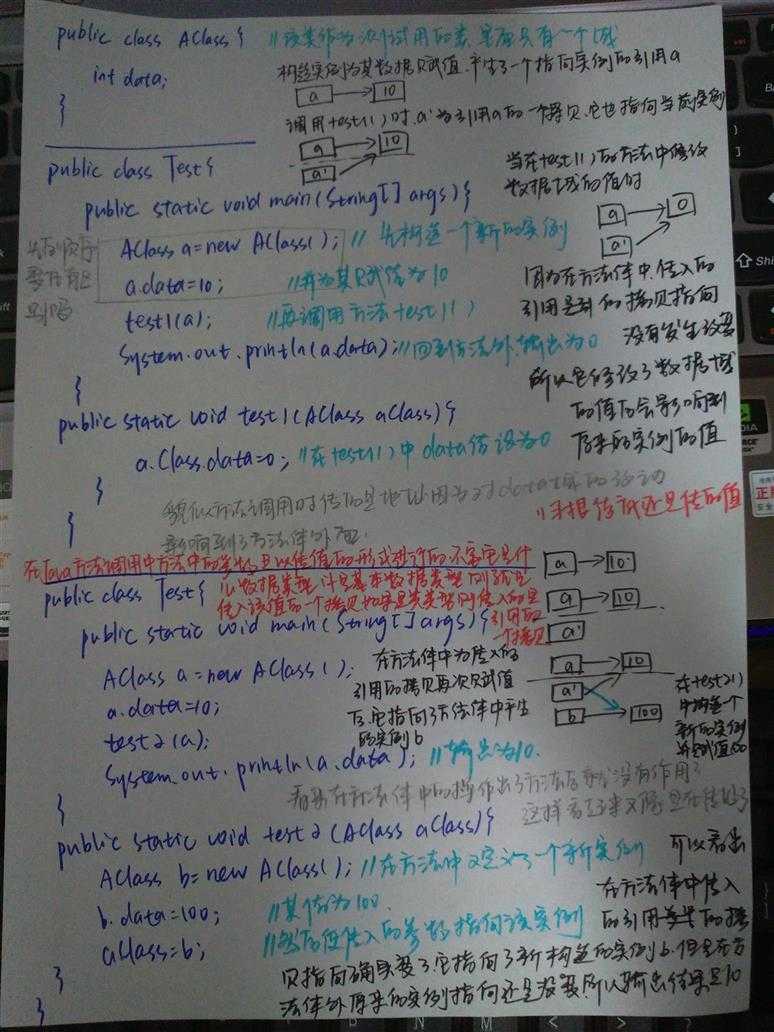 public class AClass{ //该类作为测试用的类,里面只有一个域
int data;
}
构造实例为其数据赋值,产生了一个指向实例的引用a
a 10
调用test1()时,a'为引用a的一个拷贝,它也指向当前实例
a 10
a'
public class Test{
public static void main(String[] args){
AClass a=new AClass(); //先构造一个新的实例
a.data=10; //并为其赋值为10
test1(a); //再调用方法test1()
System.out.println(a.data); //回到方法外,输出为0
}
public static void test1(AClass aClass){
a.Class.data=0; //在test1()中data值设为0
}
}
当在test1()的方法中修改
数据域的值时
a 0
a'
因为在方法体中,传入的
引用是到的拷贝指向
没有发生改变
所以它修改了数据域
的值后会影响到
原来的实例的值
貌似方法调用时传的是地址因为对data域的改动
影响到了方法体外面.
//寻根结底还是传的值
在Java方法调用中方法中的参数是以传值的形式进行的不管它是什
么数据类型
传入该值的一个拷贝
引用的
一个拷贝
public class Test{
public static void main(String[] args){
AClass a=new AClass();
a.data=10;
test2(a);
System.out.println(a.data); //输出为10.
}
a 10
a 10
a'
在方法体中为传入的
引用的拷贝再次赋值
后,它指向了方法体中产生
的实例b
a 10
a'
b 100
在test2()
中构造一个
新的实例
并赋值100
public static void test2(AClass aClass){
AClass b=new AClass(); //在方法中又定义了一个新实例
b.data=100; //其值为100
aClass=b; //然后使传入的参数指向该实例
}
}
可以看出
在方法体中传入
的引用的拷
贝指向确实变了,它指向了新构造的实例b.但是在方
法体外原来的实例指向还是没变,所以输出结果是10